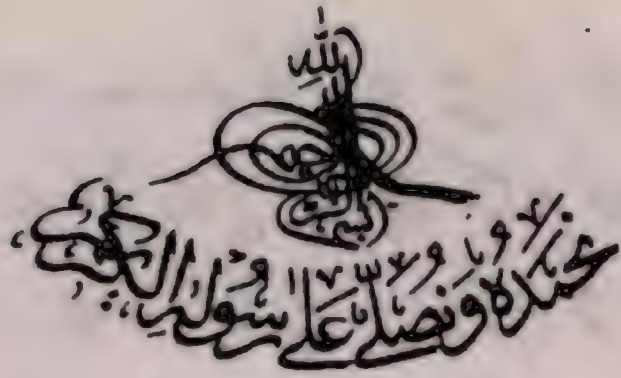 بسم الله الرحمن الرحيم
نحمده ونصلی علیٰ رسولہ الکریم